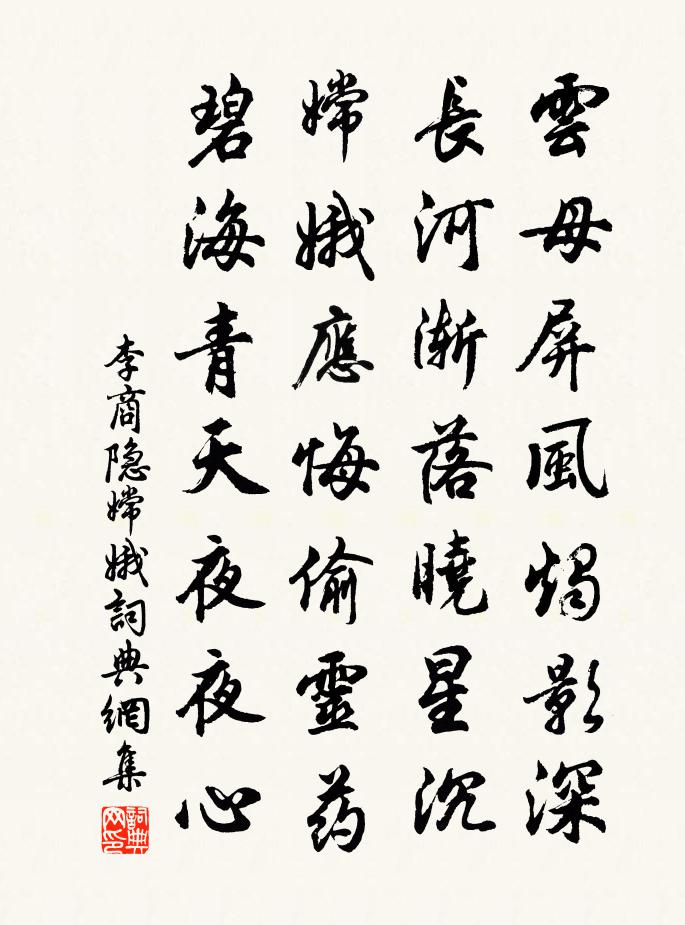 雲母屏風燭影深
長河漸落曉星沉
嫦娥應悔偷靈药
碧海青天夜夜心
李商隐嫦娥詞典網集
詞典
网印